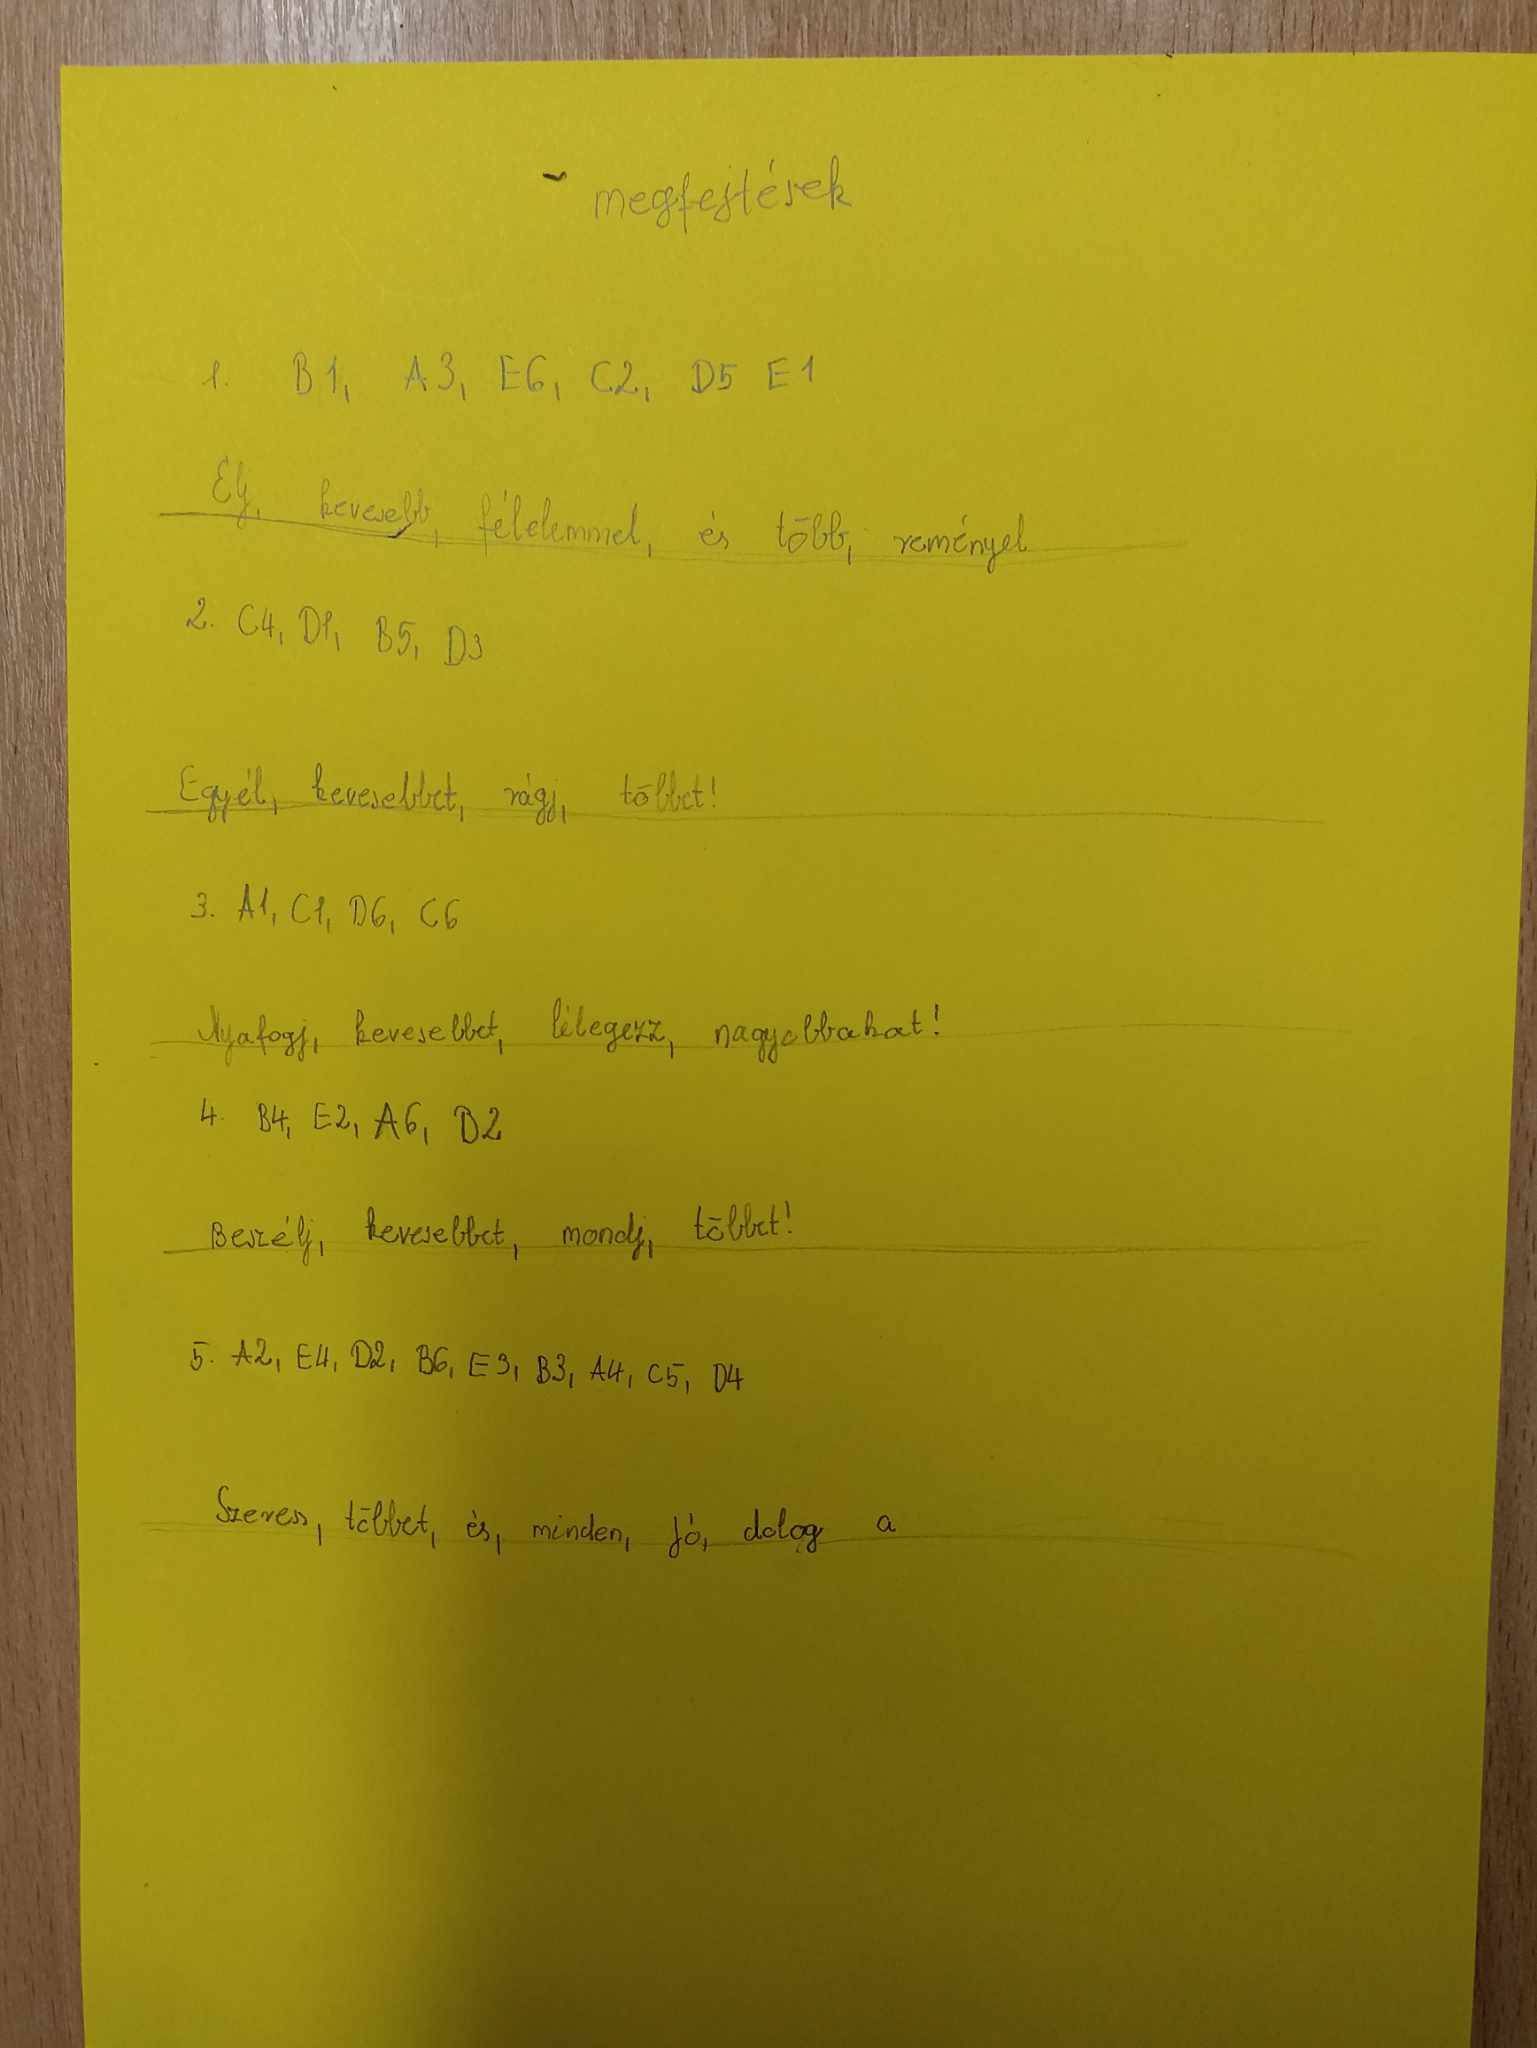 megfejtések
1. B1, A3, E6, C2, D5 E1
Élj, kevesebb, félelemmel, és több, reményel
2. C4, D1, B5, D3
Egyél, kevesebbet, rágj, többet!
3. A1, C1, D6, C6
Nyafogj, kevesebbet, lélegezz, nagyobbakat!
4. B4, E2, A6, D2
Beszélj, kevesebbet, mondj, többet!
5. A2, E4, D2, B6, E3, B3, A4, C5, D4
Szeress, többet, és, minden, jó, dolog a